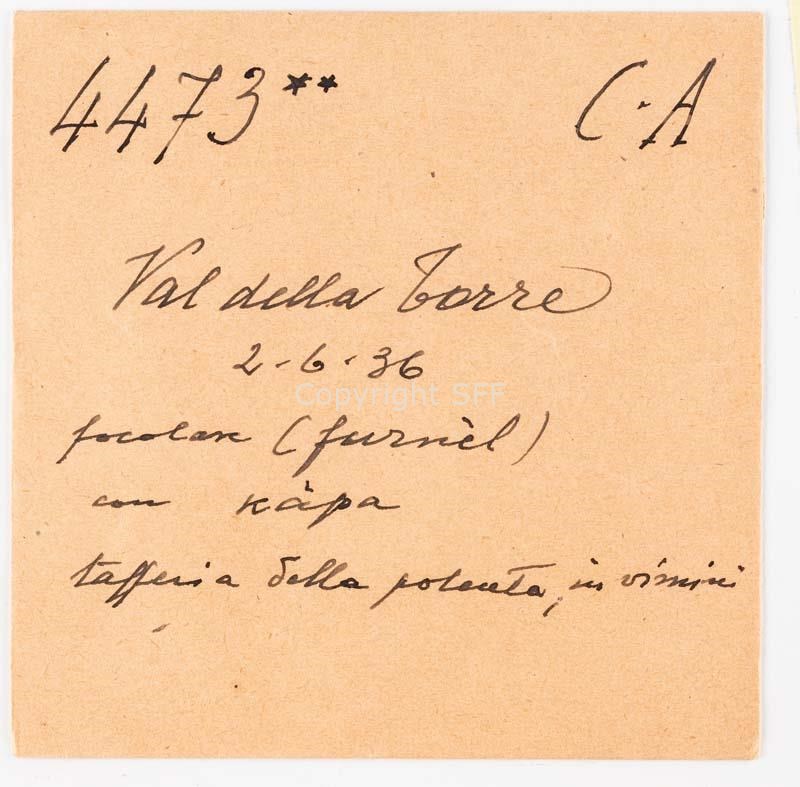 4473** C.A
Val della Torre
2-6-36
Copyright SFF
focolare (furnèl)
con kàpa
tafferia della polenta, in vimini